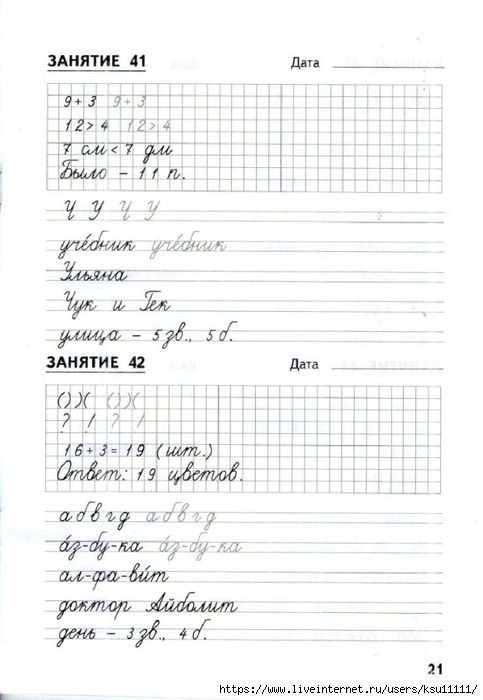 ЗАНЯТИЕ 41 Дата
9+3 9+3
12>4 12>4
7 см<7 дм
Было - 11 п.
Ч У Ч У
уче́бник уче́бник
Ульяна
Чук и Гек
улица - 5 зв., 5 б.
ЗАНЯТИЕ 42 Дата
( ) )( ( ) )(
? ! ? !
16+3=19 (шт.)
Ответ: 19 цветов.
а б в г д а б в г д
а́з-бу-ка а́з-бу-ка
ал-фа-ви́т
доктор Айболит
день - 3 зв., 4 б.
21
https://www.liveinternet.ru/users/ksu11111/